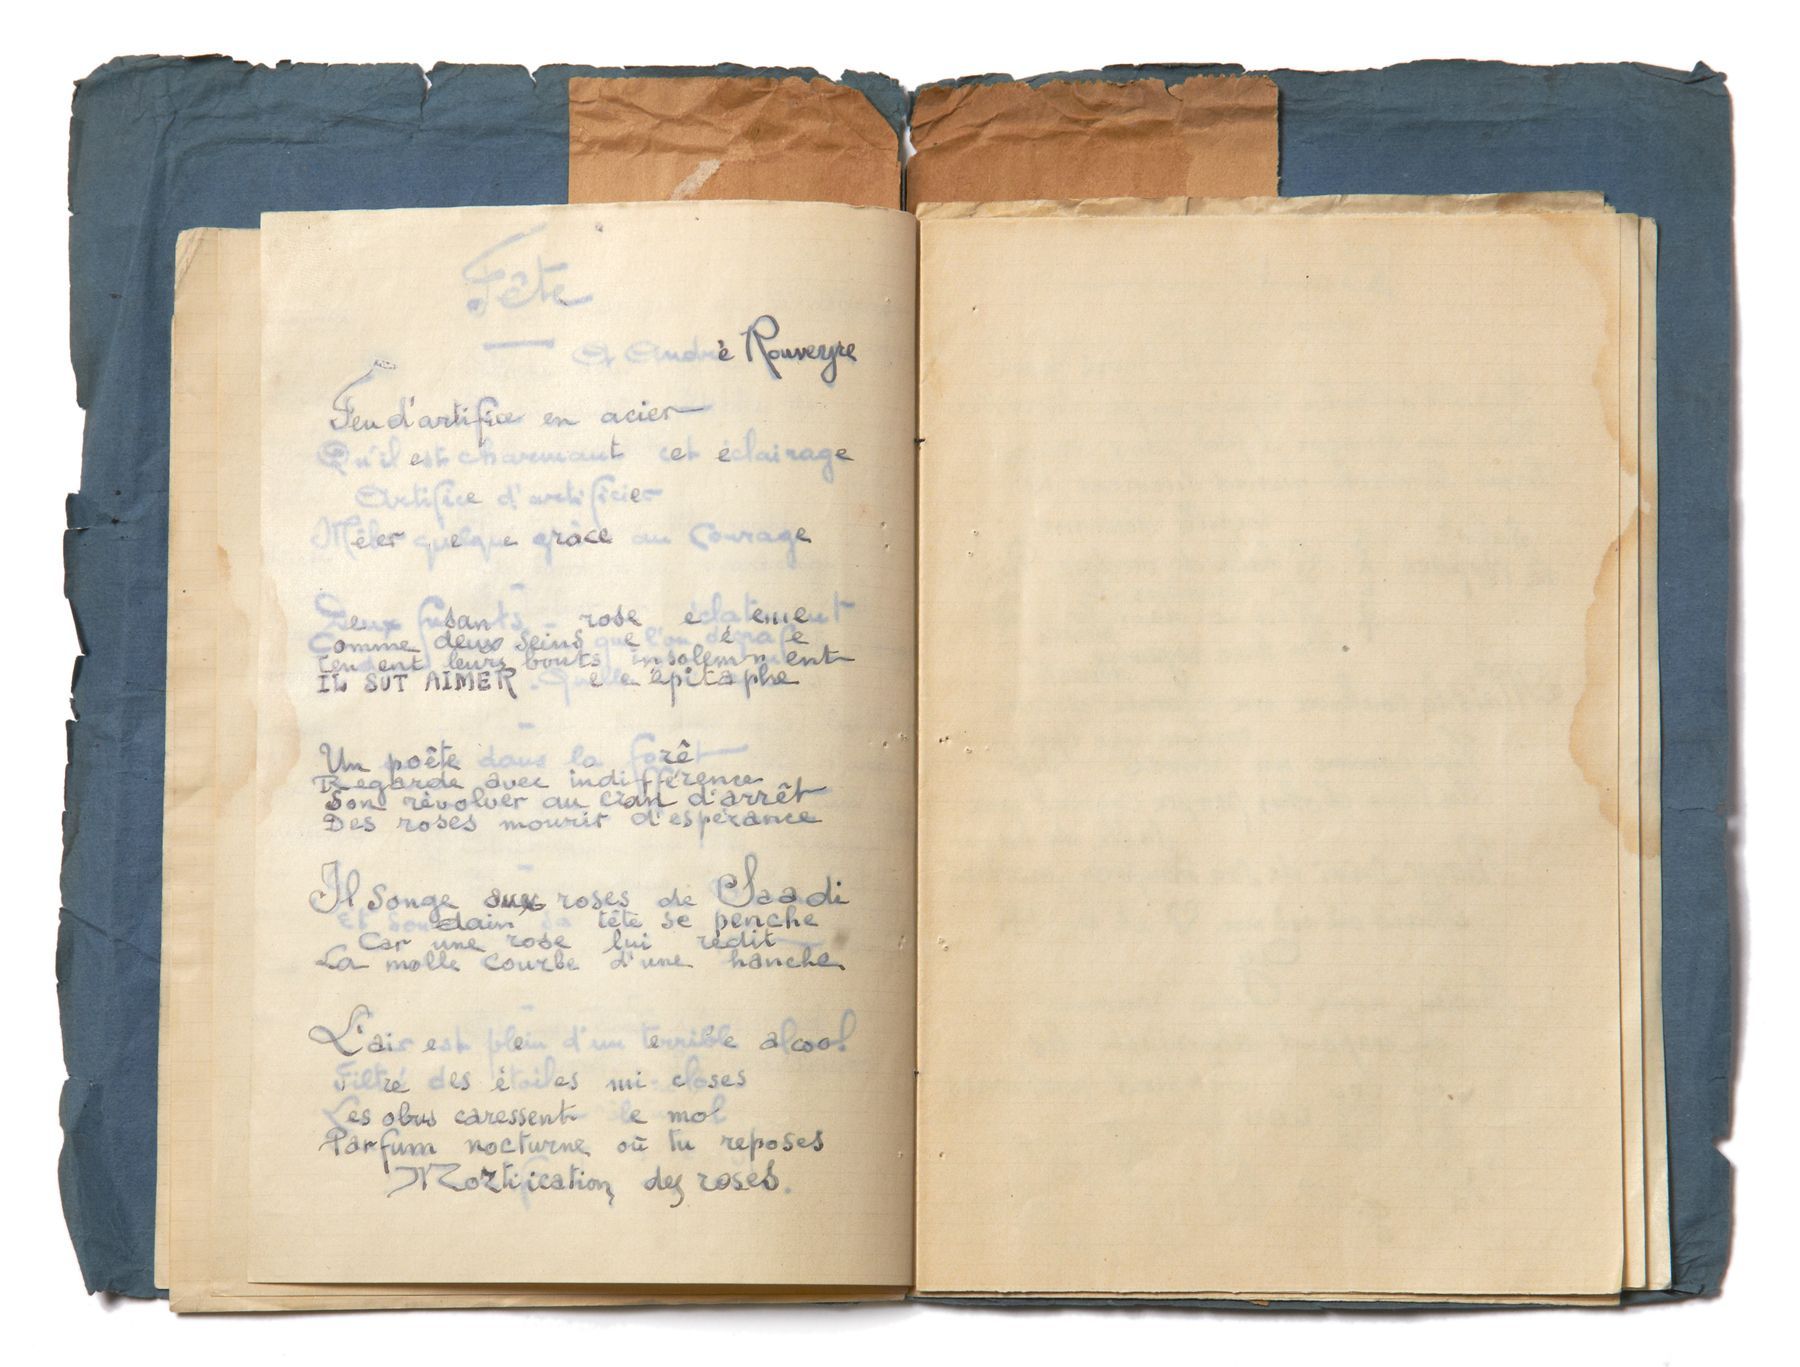 Fête
A André Rouveyre
Feu d'artifice en acier
Qu'il est charmant cet éclairage
Artifice d'artificier
Mêler quelque grâce au Courage
Deux fusants rose éclatement
Comme deux seins que l'on dégrafe
tendent leurs bouts insolemment
IL SUT AIMER. Quelle épitaphe
Un poête dans la forêt
Regarde avec indifférence
Son révolver au cran d'arrêt
Des roses mourir d'espérance
Il Songe aux roses de Saadi
Et soudain sa tête se penche
Car une rose lui redit
La molle courbe d'une hanche
L'air est plein d'un terrible alcool
Filtré des étoiles mi-closes
Les obus caressent le mol
Parfum nocturne où tu reposes
Mortification des roses.